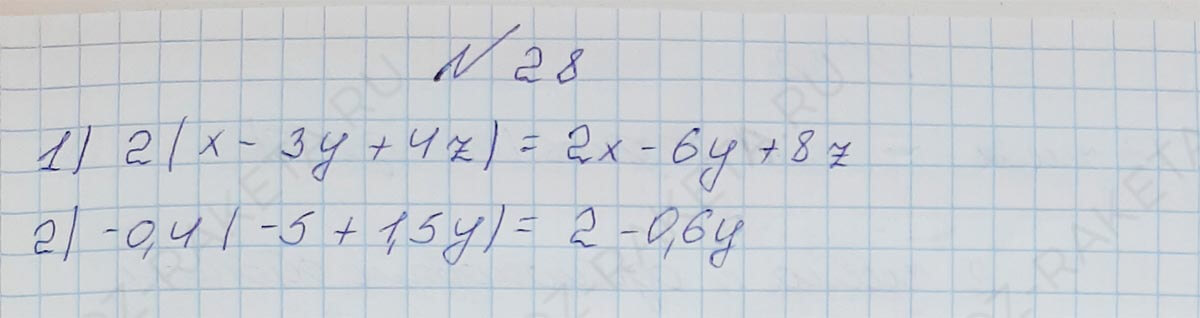 № 28
1) 2(x - 3y + 4z) = 2x - 6y + 8z
2) -0,4(-5 + 1,5y) = 2 - 0,6y